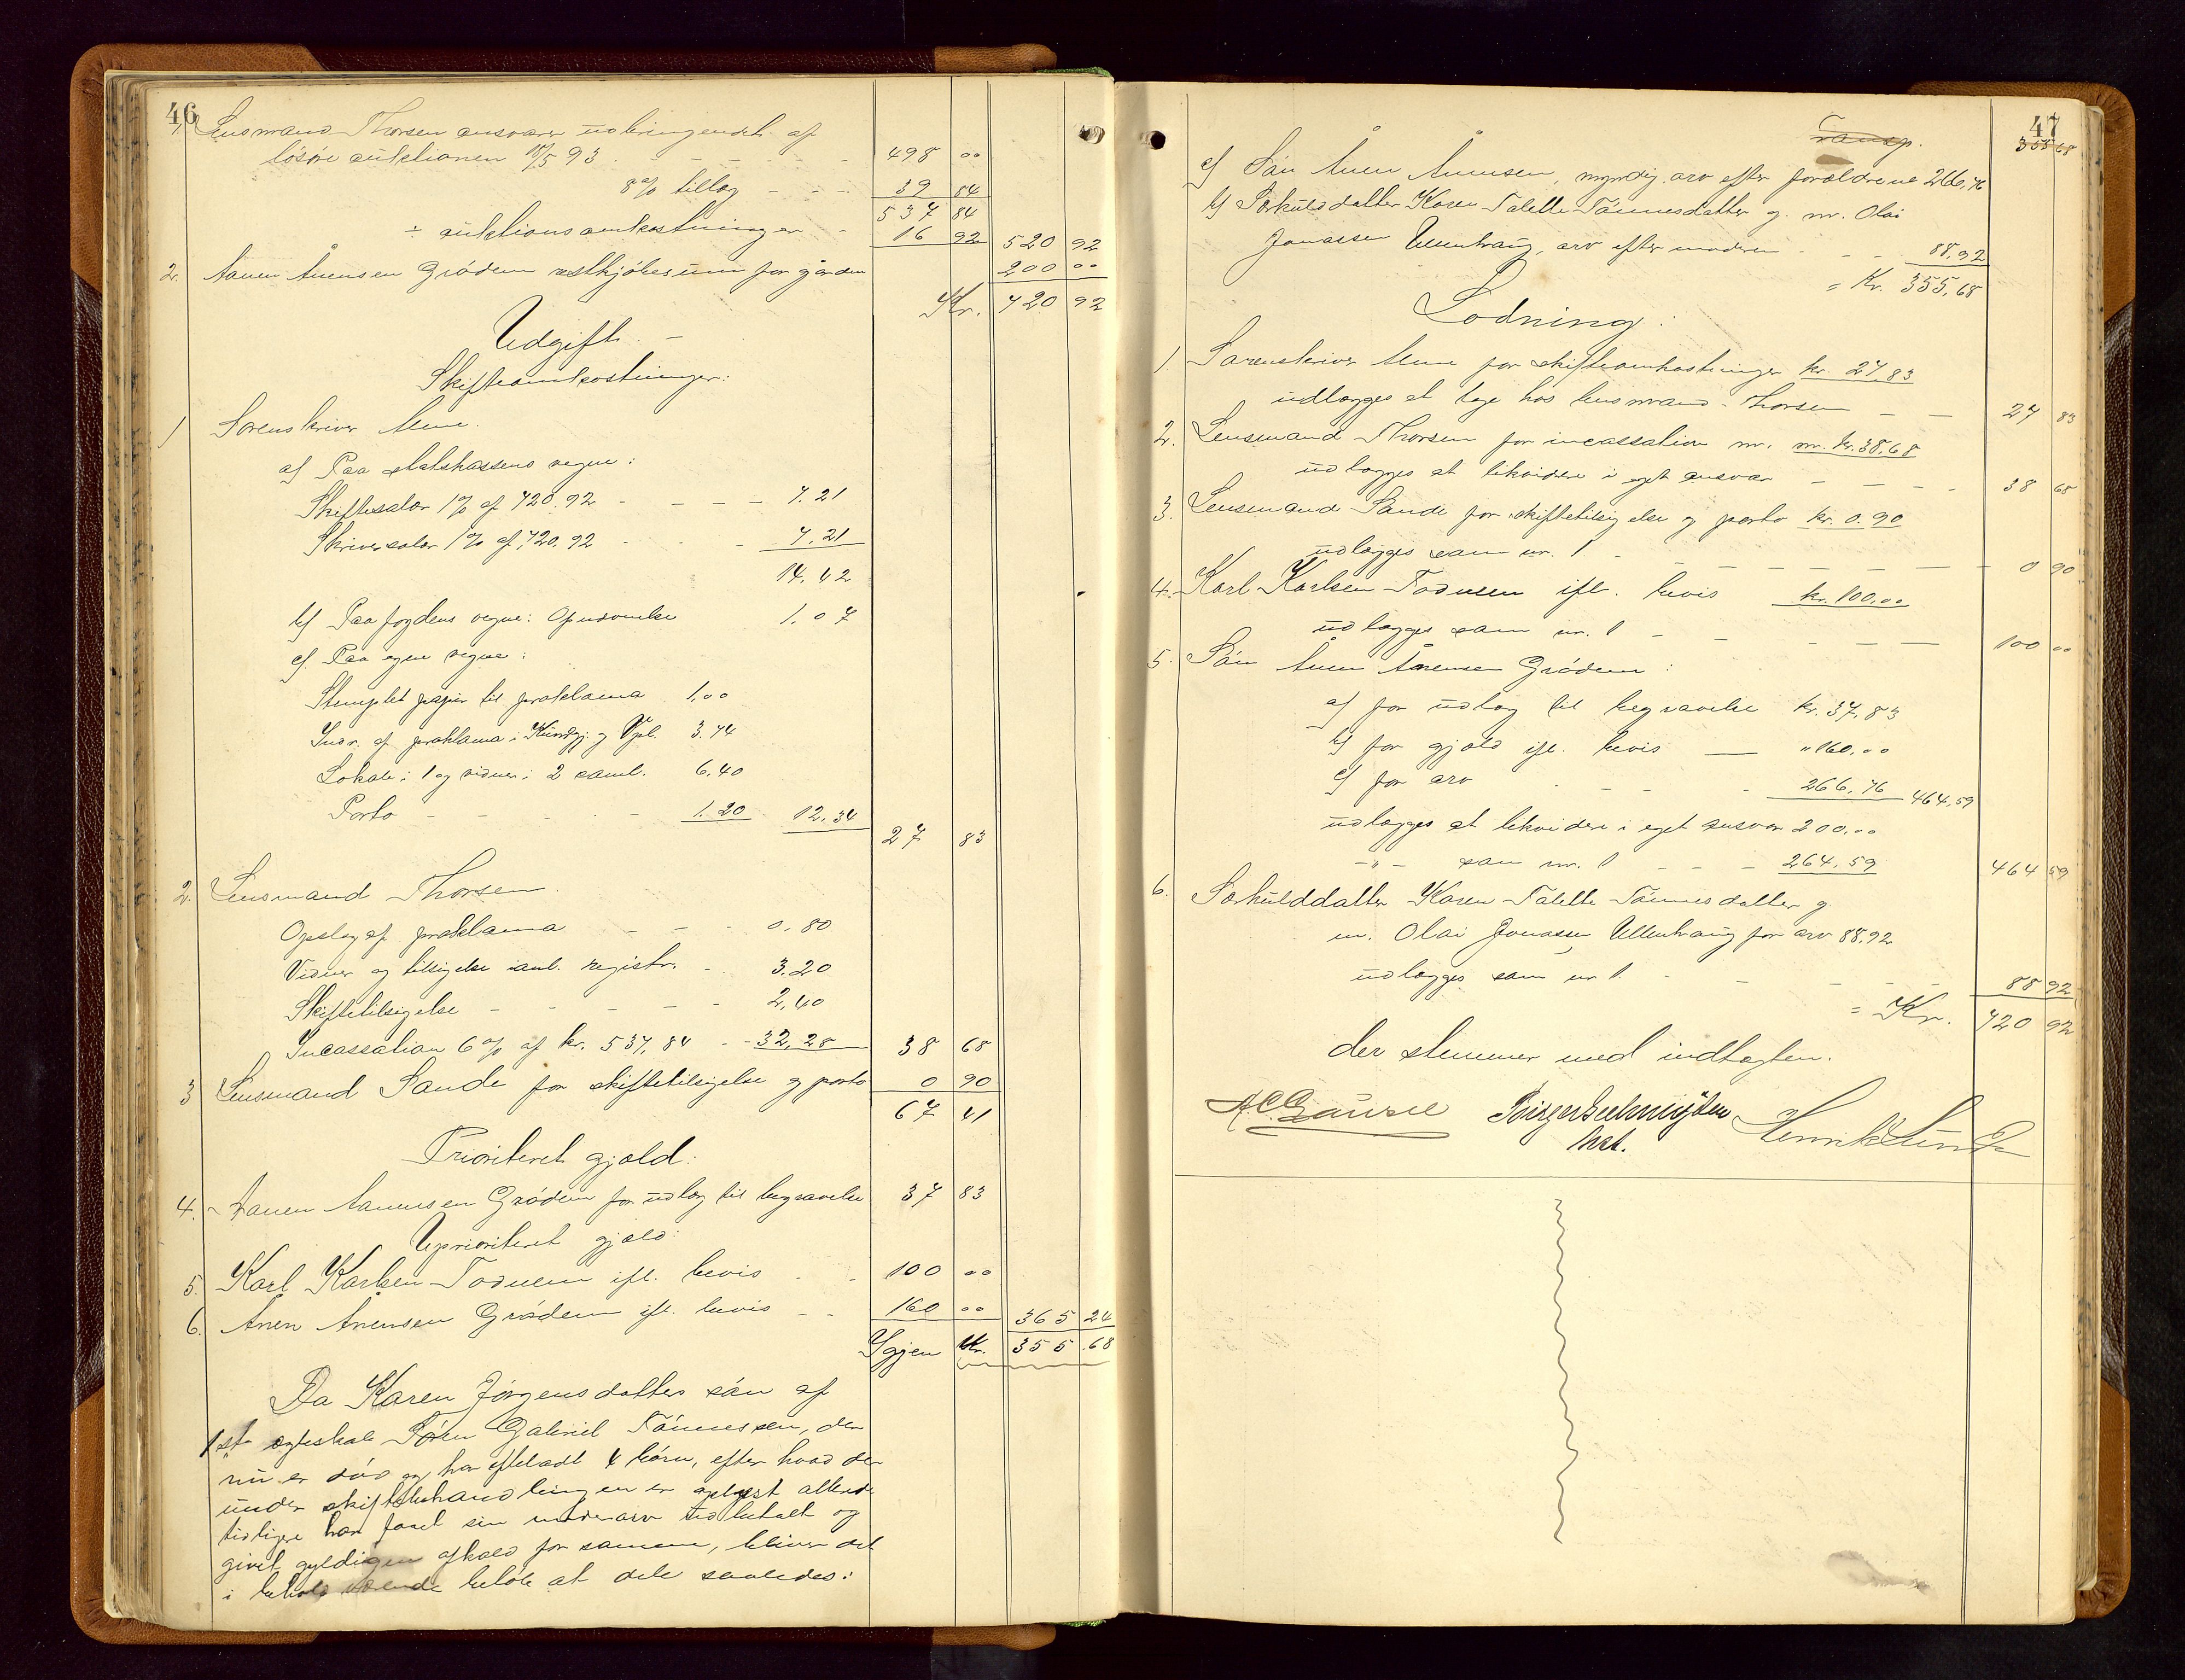 46
1 Lensmand Thorsen ansvarer udbringendet af
løsøre auktionen 18/5 93 498 00
8 % tillæg 39 84
537 84
÷ auktionsomkostninger 16 92 520 92
2. Aanen Ånensen Grødem restkjøbesum for gården 200 00
Kr. 720 92
Udgift.
Skifteomkostninger:
1 Sorenskriver
a) Paa statskassens vegne:
Skiftesalær 1% af 720.92 7.21
Skriversalær 1% af 720.92 7.21
14.42
b) Paa fogdens vegne: Opnævnelse 1.07
c) Paa egne vegne:
Stemplet papir til proklama 1.00
Indr. af proklama i Kundgj. og Vbl. 3.74
Lokale i 1 og vidner i 2 saml. 6.40
Porto 1.20 12.34
27 83
2. Lensmand Thorsen.
Opslag af proklama 0.80
Vidner og tilsigelse anl. registr. 3.20
Skiftetilsigelse 2.40
Incassation 6 % af kr. 537,84 32,28 38 68
3 Lensmand Sande for skiftetilsigelse og porto 0 90
67 41
Prioriteret gjæld:
4. Aanen Aanensen Grødem for udlæg til begravelse 37 83
Uprioriteret gjæld:
5. Karl Karlsen Todnem ifl. bevis 100 00
6. Ånen Ånensen Grødem ifl. bevis 160 00 365 24
Igjen Kr. 355.68
Da Karen Jørgensdatters søn af
1ste ægteskab Søren Gabriel Tønnessen, der
nu er død og har efterladt 4 børn, efter hvad der
under skiftebehandlingen er oplyst allerede
tidligere har faaet sin mødrearv udbetalt og
givet gyldigen afkald for samme, bliver det
i behold værende beløb at dele saaledes:
47
Transp. 355 68
a) Søn Ånen Ånensen, myndig, arv efter forældrene 266,76
b) Særkuldsdatter Karen Talette Tønnesdatter g. m. Olai
Jonassen Ullenhaug, arv efter moderen 88,92
= Kr. 355,68
Lodning:
1. Sorenskriver for skifteomkostninger kr. 27,83
udlægges at tage hos lensmand Thorsen 27 83
2. Lensmand Thorsen for incassation m. m. kr. 38,68
udlægges at likvidere i eget ansvar 38 68
3. Lensmand Sande for skiftetilsigelse og porto kr. 0.90
udlægges som nr. 1 0 90
4. Karl Karlsen Todnem ifl. bevis kr. 100.00
udlægges som nr. 1 100 00
5. Søn Ånen Ånensen Grødem:
a) for udlæg til begravelse kr. 37,83
b) for gjæld ifl. bevis " 160.00
c) for arv 266,76 464,59
udlægges at likvidere i eget ansvar 200.00
-"- som nr. 1 264,59 464 59
6. Særkulddatter Karen Talette Tønnesdatter g.
m. Olai Jonassen Ullenhaug for arv 88,92
udlægges som nr 1. 88 92
= Kr. 720 92
der stemmer med indtægten.
Birger Geelmuyden
Henrik